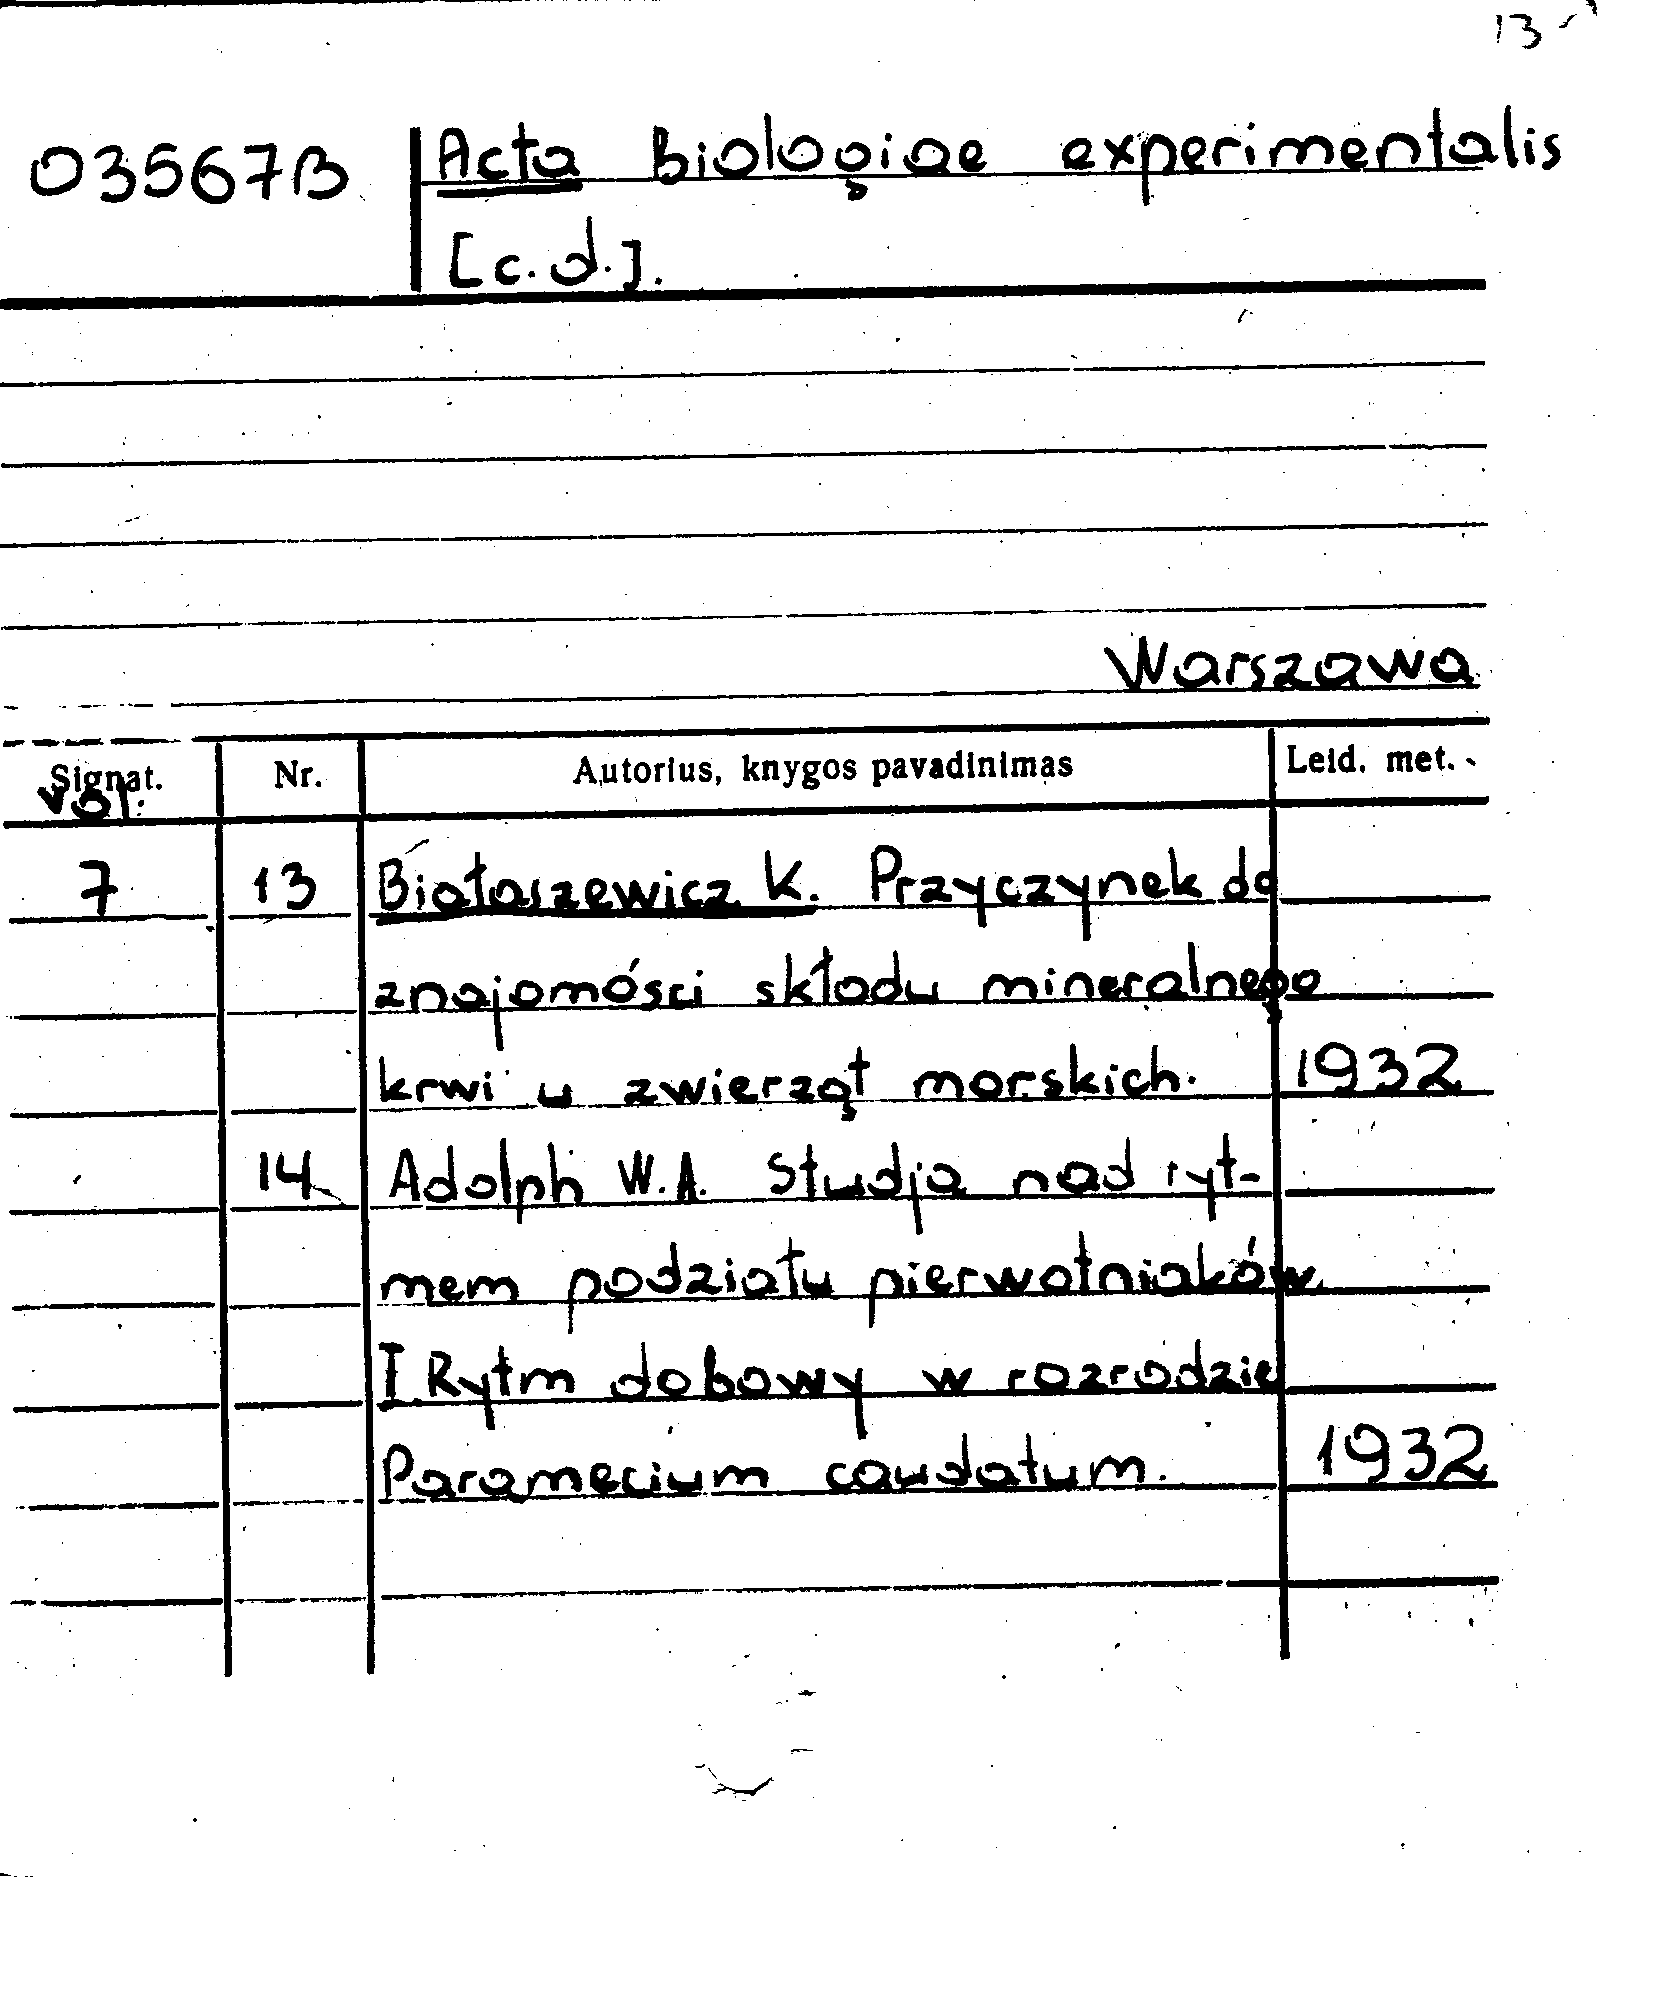 13
03567B Acta Biologiae experimentalis
[c.d.].
Warszawa
Signat. Nr. Autorius, knygos pavadinimas Leid. met.
vol.
7 13 Białaszewicz K. Przyczynek do
znajomości składu mineralnego
krwi u zwierząt morskich. 1932
14 Adolph W.A. Studja nad ryt-
mem podziału pierwotniaków.
I Rytm dobowy w rozrodzie
Paramecium caudatum. 1932